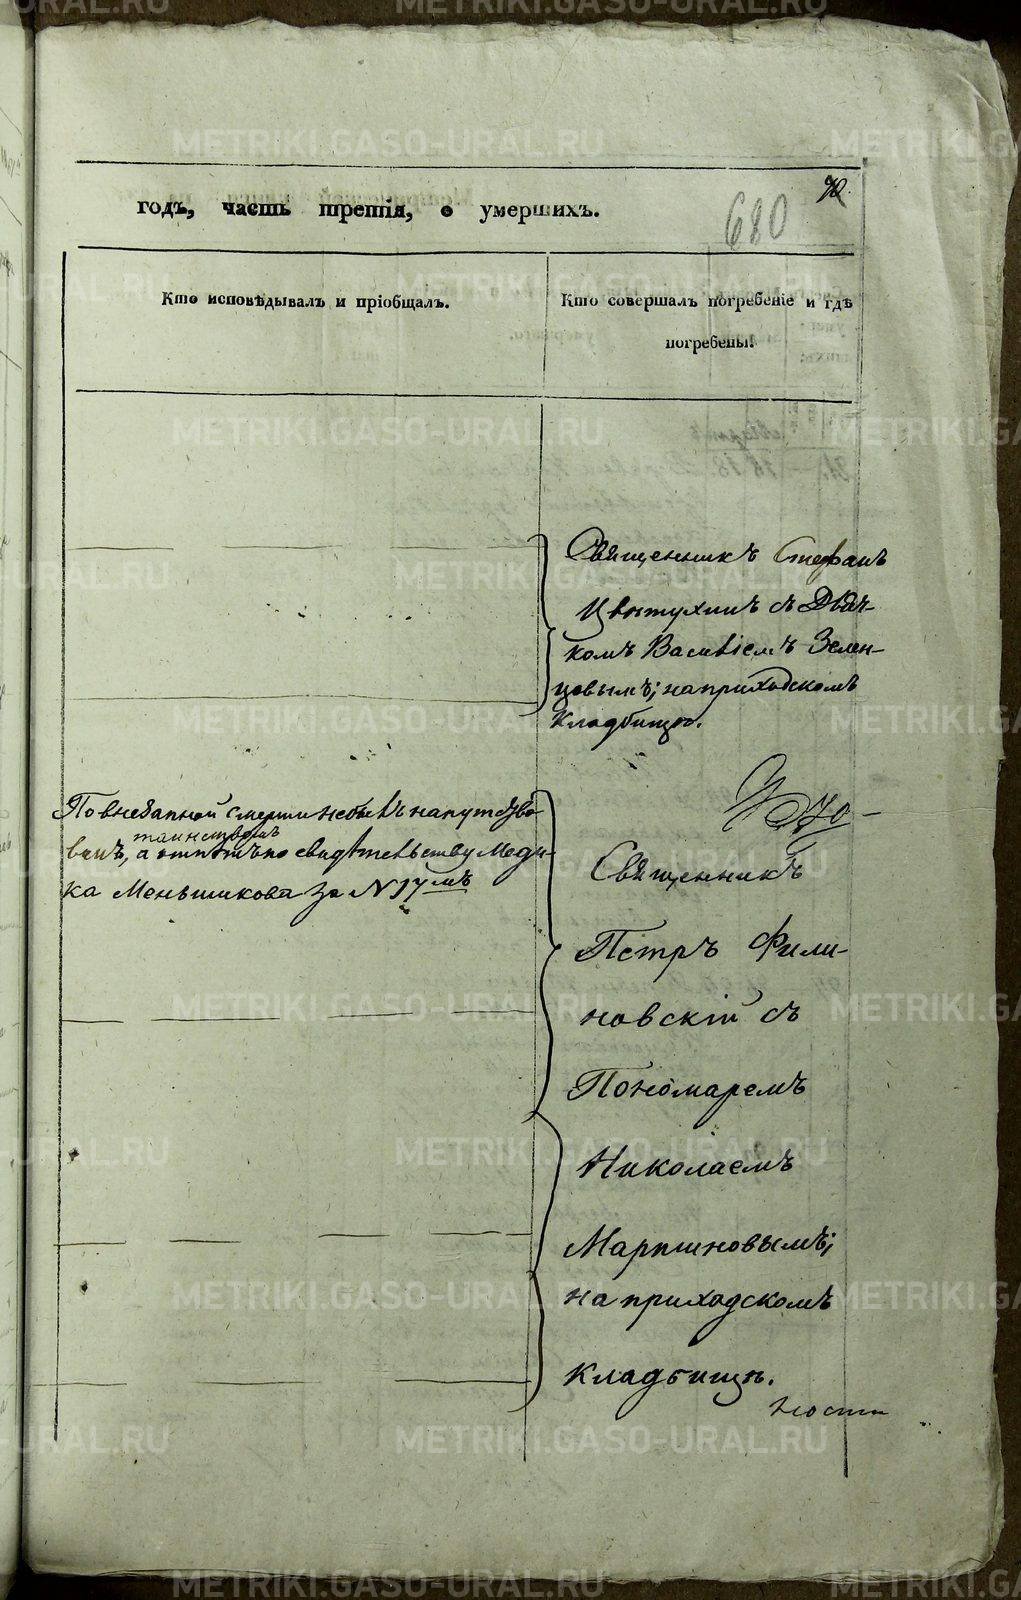 METRIKI.GASO-URAL.RU
годъ, часть третія, о умершихъ.
680
Кто исповѣдывалъ и пріобщалъ.
Кто совершалъ погребеніе и гдѣ
погребены?
Священникъ Стефанъ
Цвѣтухинъ съ Дьяч-
комъ Василіемъ Зелен-
цовымъ; на приходскомъ
кладбищѣ.
По внезапной смерти небылъ напутство-
таинствомъ
ванъ, а отпѣтъ по свидѣтельству Меди-
ка Меньшикова за N 17мъ
Священникъ
Петръ Фили-
новскій съ
Пономаремъ
Николаемъ
Мартиновымъ;
на приходскомъ
кладбищѣ.
ности